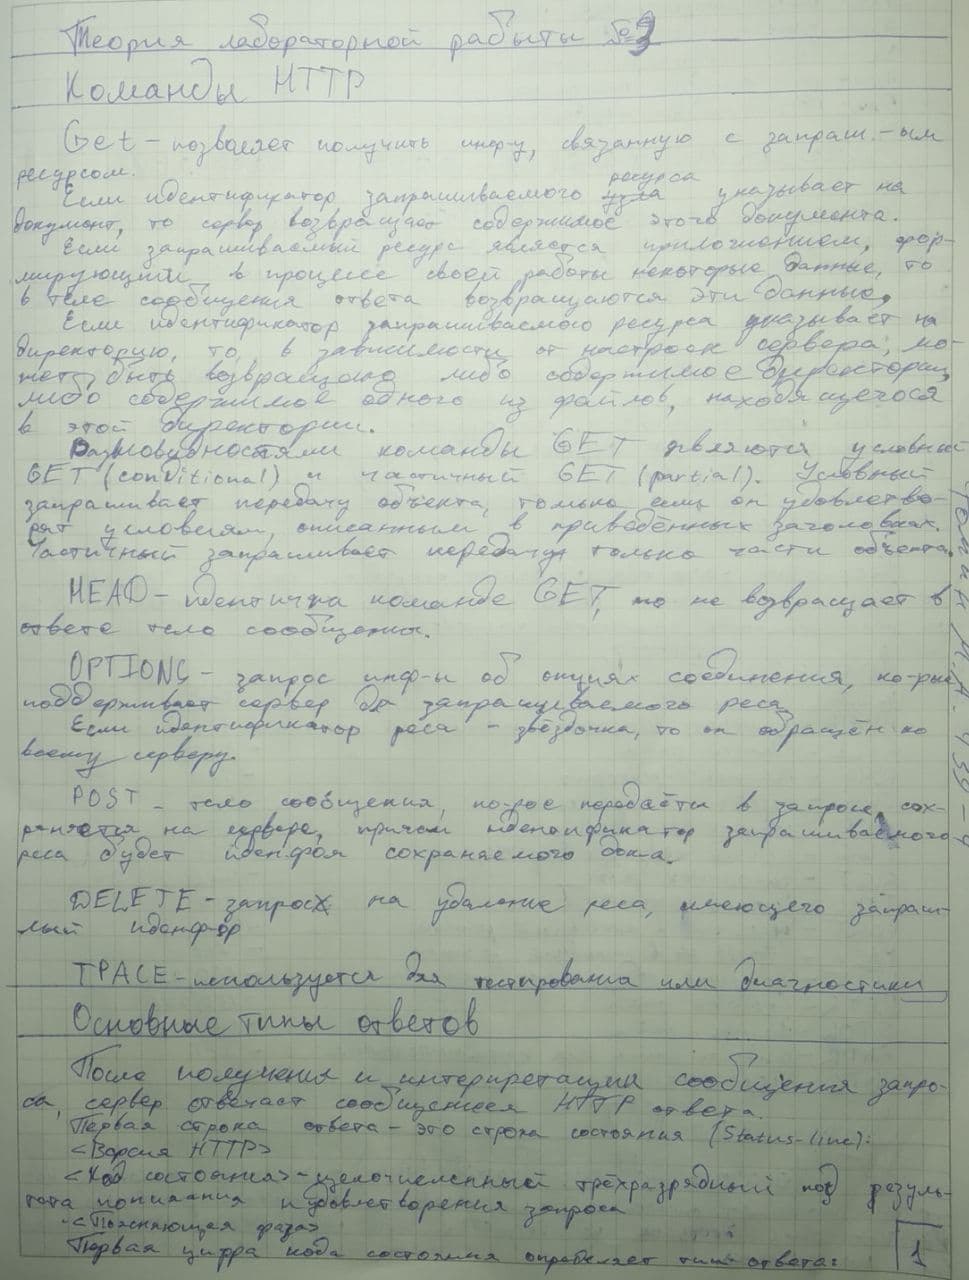 Теория лабораторной работы №3
Команды HTTP
Get – позволяет получить инф-у, связанную с запраш.-ым
ресурсом.
Если идентификатор запрашиваемого ресурса указывает на
документ, то сервер возвращает содержимое этого документа.
Если запрашиваемый ресурс является приложением, фор-
мирующим в процессе своей работы некоторые данные, то
в теле сообщения ответа возвращаются эти данные.
Если идентификатор запрашиваемого ресурса указывает на
директорию, то, в зависимости от настроек сервера, мо-
жет быть возвращено либо содержимое директории,
либо содержимое одного из файлов, находящегося
в этой директории.
Разновидностями команды GET являются условный
GET (conditional) и частичный GET (partial). Условный
запрашивает передачу объекта, только если он удовлетво-
рят условиям, описанным в приведённых заголовках.
Частичный запрашивает передачу только части объекта.
HEAD – идентична команде GET, но не возвращает в
ответе тело сообщения.
OPTIONS – запрос инф-и об опциях соединения, ко-рые
поддерживает сервер для запрашиваемого реса.
Если идентификатор реса – звёздочка, то он обращён ко
всему серверу.
POST – тело сообщения, ко-рое передаётся в запросе, сох-
раняется на сервере, причём идентификатор запрашиваемого
реса будет иден-фом сохраняемого
DELETE – запрос на удаление реса, имеющего запраш-
мый иденф-ор
TРACE – используется для тестирования или диагностики
Основные типы ответов
После получения и интерпретации сообщения запро-
са, сервер отвечает сообщением HTTP ответа.
Первая строка ответа – это строка состояния (Status-line):
<Версия HTTP>
<Код состояния> – целочисленный трёхразрядный код резуль-
тата понимания и удовлетворения запроса
<Поясняющая фраза>
Первая цифра кода состояния определяет тип ответа:
1
439-4